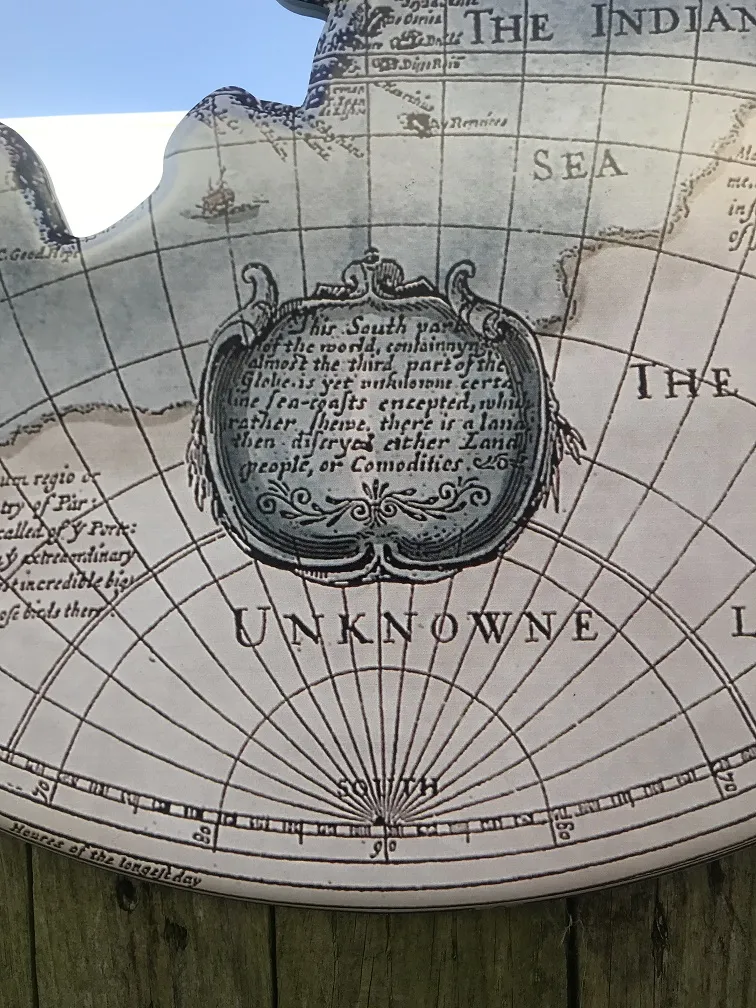 THE INDIAN
Dy Romeiros
SEA
C. Good Hope
This South part
of the world, containnyng
almost the third part of the
Globe, is yet unknowne certa
ine sea-coasts excepted, which
rather shewe, there is a land
then discryed either Land,
people, or Comodities.
THE
um regio or
try of Par:
called of ẏ Ports:
ẏ extreordinary
st incredible big
ose birds there.
UNKNOWNE
L
SOUTH
70
80
90
80
70
Houres of the longest day